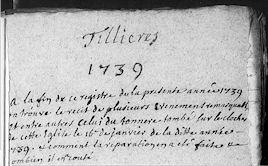 Tillieres
1739
a la fin de ce registre de la presente année 1739
on trouve le recit de plusieurs Evenement remarquable
et entre autres Celui du tonnere tombé sur le clocher
de cette Eglise le 16e de janvier de la ditte année
1739. comment la reparation en a été faite &
combien il en coute